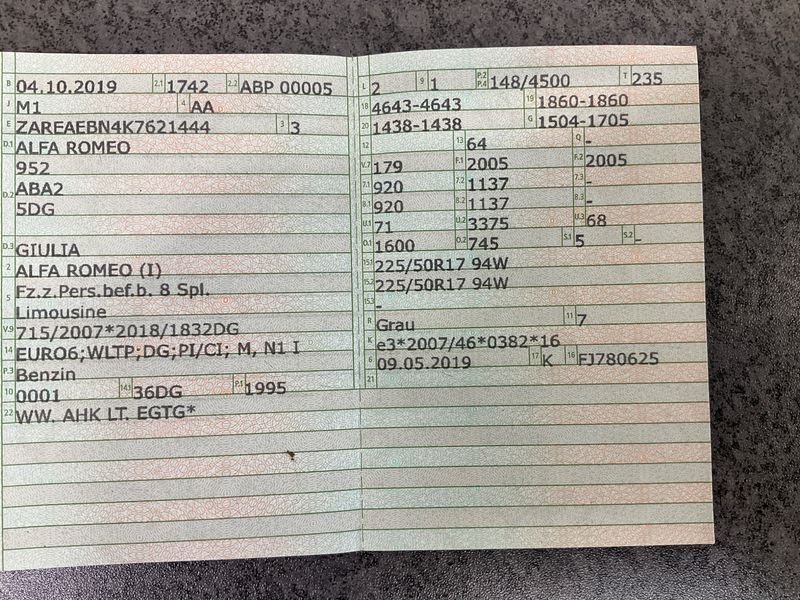 B 04.10.2019 2.1 1742 2.2 ABP 00005
J M1 4 AA
E ZAREAEBN4K7621444 3 3
D.1 ALFA ROMEO
952
D.2 ABA2
5DG
D.3 GIULIA
2 ALFA ROMEO (I)
5 Fz.z.Pers.bef.b. 8 Spl.
Limousine
V.9 715/2007*2018/1832DG
14 EURO6;WLTP;DG;PI/CI; M, N1 I
P.3 Benzin
10 0001 14.1 36DG P.1 1995
22 WW. AHK LT. EGTG*
L 2 9 1 P.2 P.4 148/4500 T 235
18 4643-4643 19 1860-1860
20 1438-1438 G 1504-1705
12 13 64 Q -
V.7 179 F.1 2005 F.2 2005
7.1 920 7.2 1137 7.3 -
8.1 920 8.2 1137 8.3 -
U.1 71 U.2 3375 U.3 68
O.1 1600 O.2 745 S.1 5 S.2 -
15.1 225/50R17 94W
15.2 225/50R17 94W
15.3 -
R Grau 11 7
K e3*2007/46*0382*16
6 09.05.2019 17 K 16 FJ780625
21